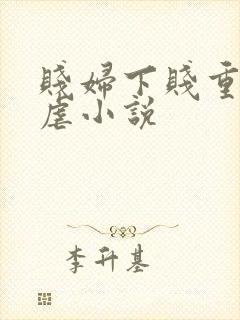 賤婦下賤重
虐小說
李升基